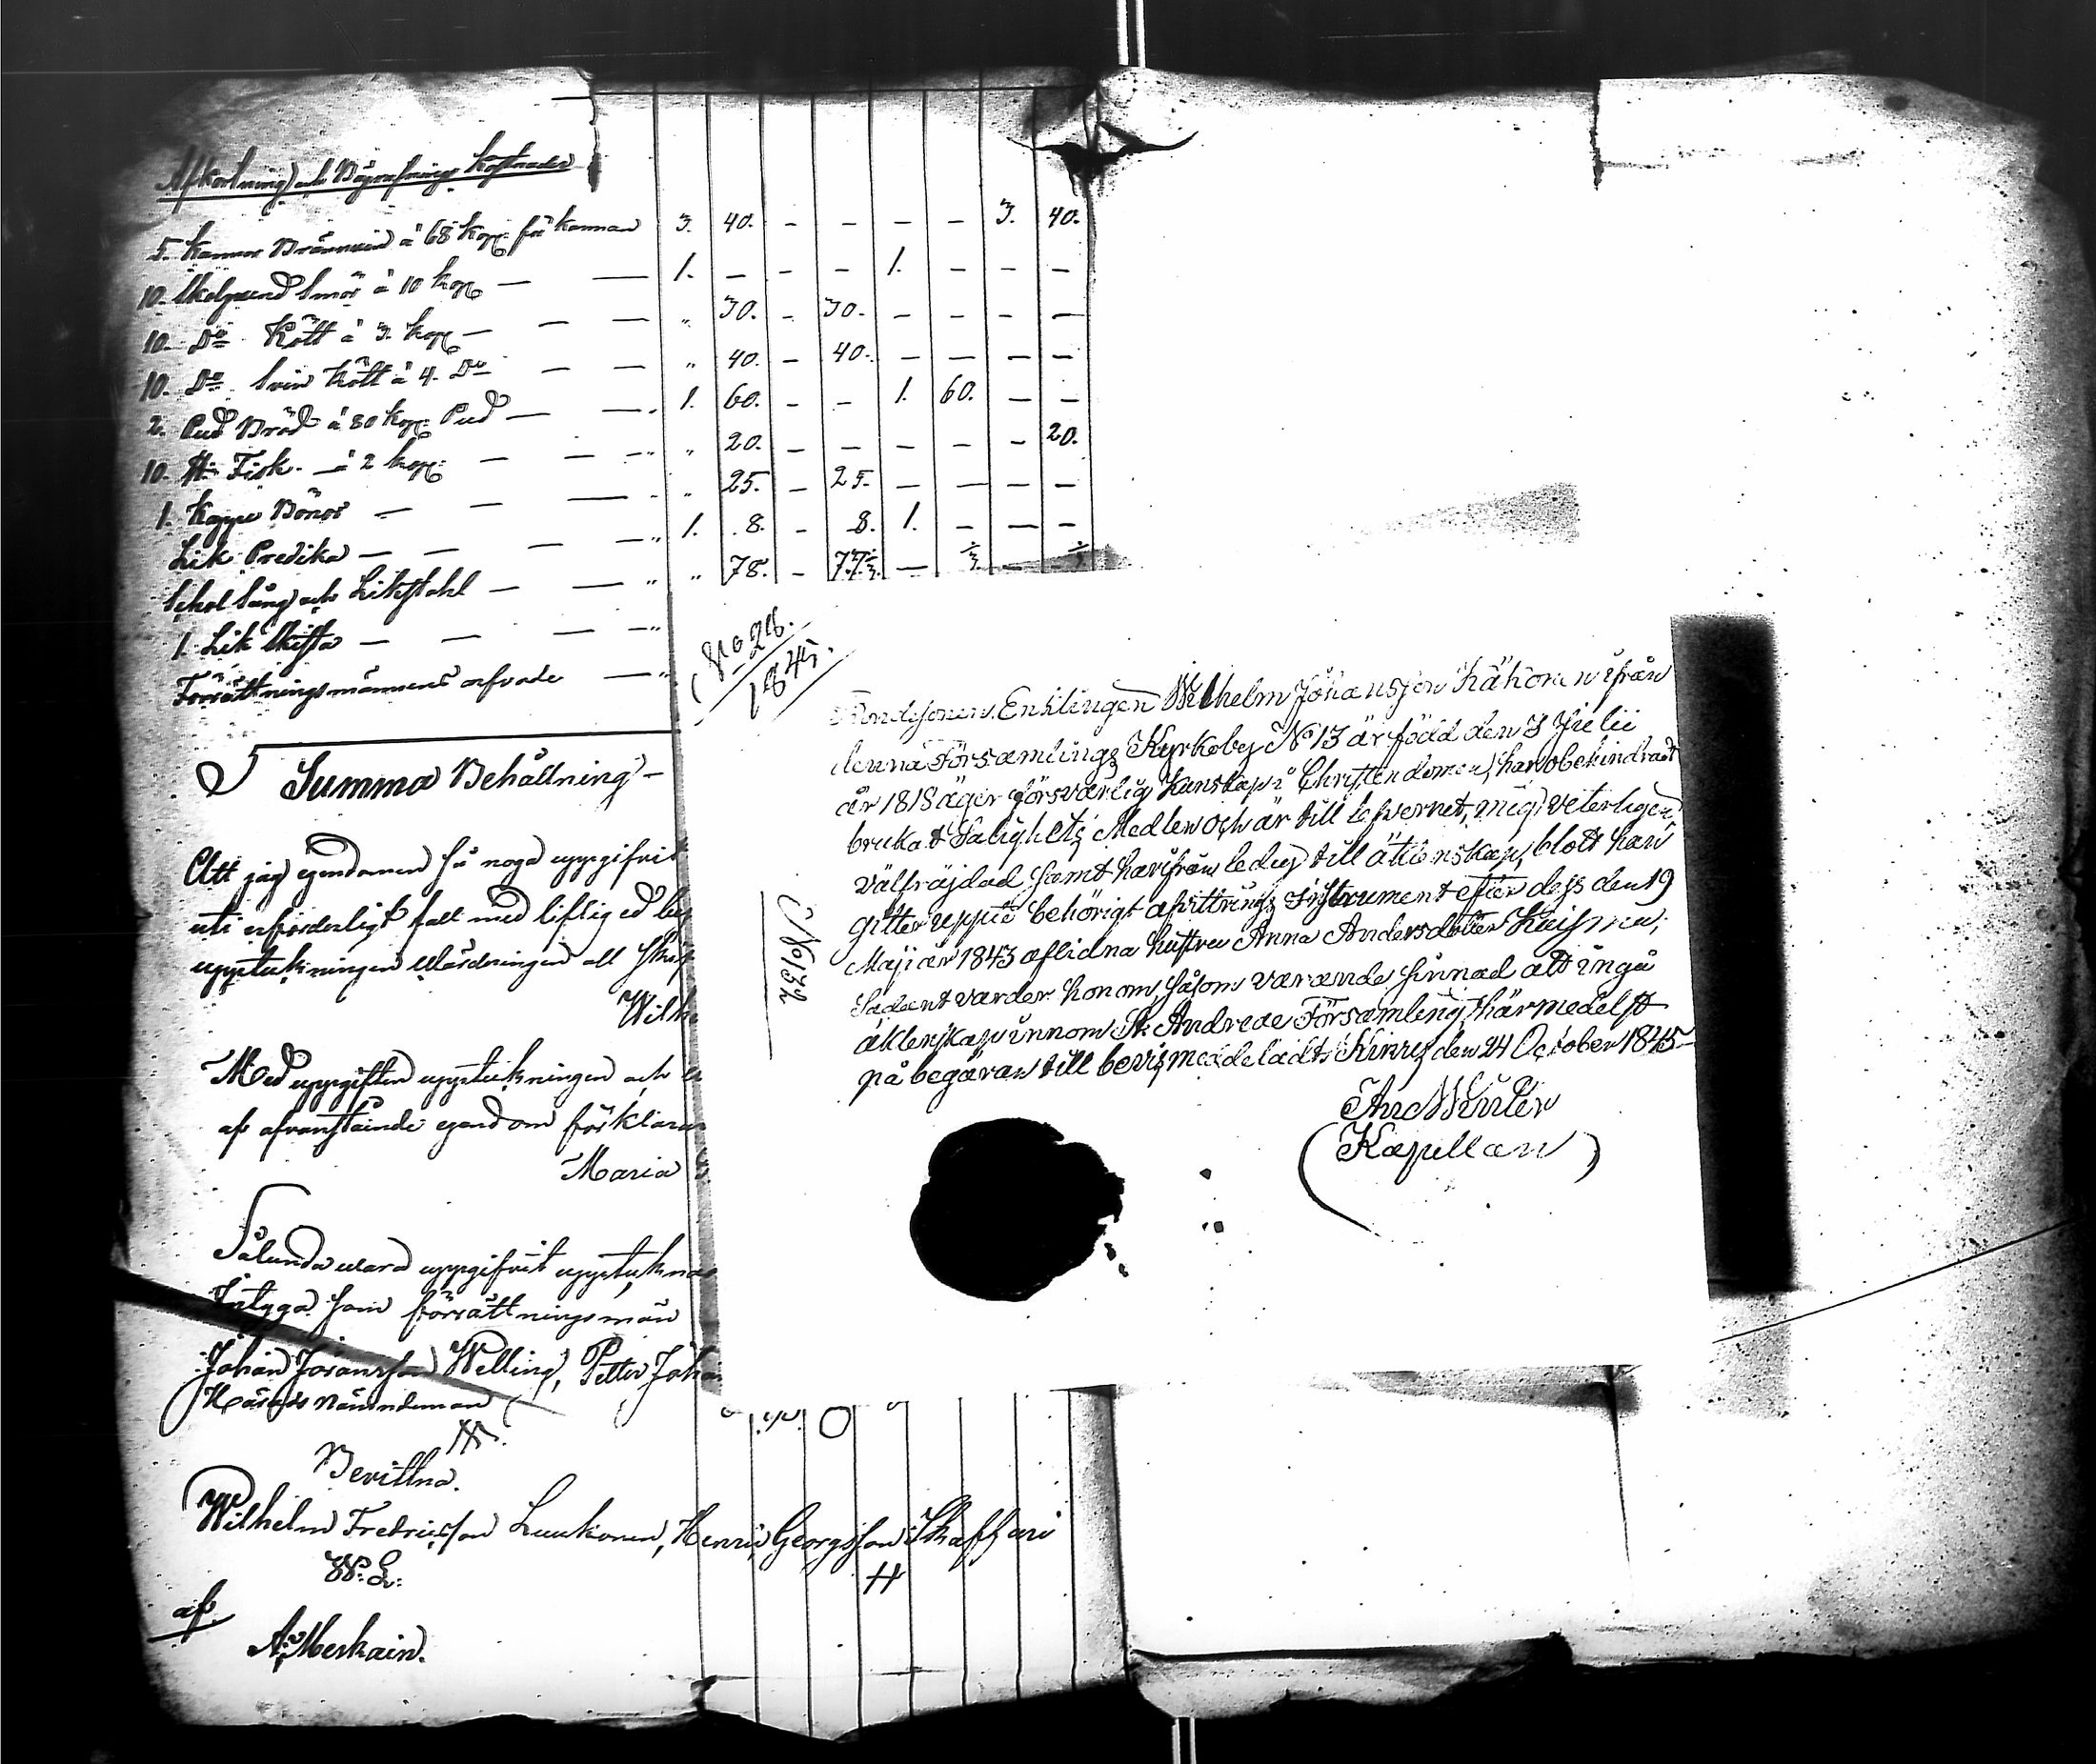 Afkortning och Begrafnings Kostnader
5. Kannor Brännvin à 68 kop: för kannan 3. 40. – – – – 3. 40.
10. Skålpund Smör à 10 kop – – 1. – – – 1. – – –
10. Do Kött à 3. kop – – – " 30. – 30. – – – –
10. Do Svin kött à 4. Do – – " 40. – 40. – – – –
2. Pud Bröd à 80 kop: Pud – – 1. 60. – – 1. 60. – –
10. ℔: Fisk. – à 2 kop: – – – " 20. – – – – – 20.
1. Kappe Bönor – – – " 25. – 25. – – – –
Lik Predika – – – – 1. 8. – 8. 1. – – –
Schol Sång och Likstohl – – " 78. –
1. Lik Kista – – – –
Förrättningsmännens arfvode –
Summa Behållning –
Att jag egendomen så noga uppgifvit
uti erforderligt fall med liflig ed
uppteckningen Wärderingen all
Wilh
Med uppgiften uppteckningen och
af ofvanstående egendom förklara
Maria
Sålunda vara uppgifvit uppteckna
Intyga som förrättningsmän
Johan Joransson Welling, Petter Joha
Härads Nämndeman
Bevittna.
Wilhelm Fredricsson Luukonen, Henric Georgsson
W: L: H
af
No 28.
1845.
No 132
Enklingen Wilhelm Johansson Kähönen ifrån
denna Församlings Kyrkoby No 13 är född den 3 Julii
år 1818 äger försvarlig Kunskap i Christendomen, har obehindradt
brukat Salighetz Medlen och är till lefvernet, mig veterligen,
välfräjdad samt härifrån ledig till äktenskap, blott han
gitter uppte behörigt afvittrings Instrument efter dess den 19
Maji år 1843 aflidna hustru Anna Andersdotter
Sådant varder honom, såsom varande sinnad att ingå
äktenskap innom St Andreae Församling, härmedelst
på begäran till bevis meddeladt. Kivineb den 24 October 1845
And Winter
Kapellan